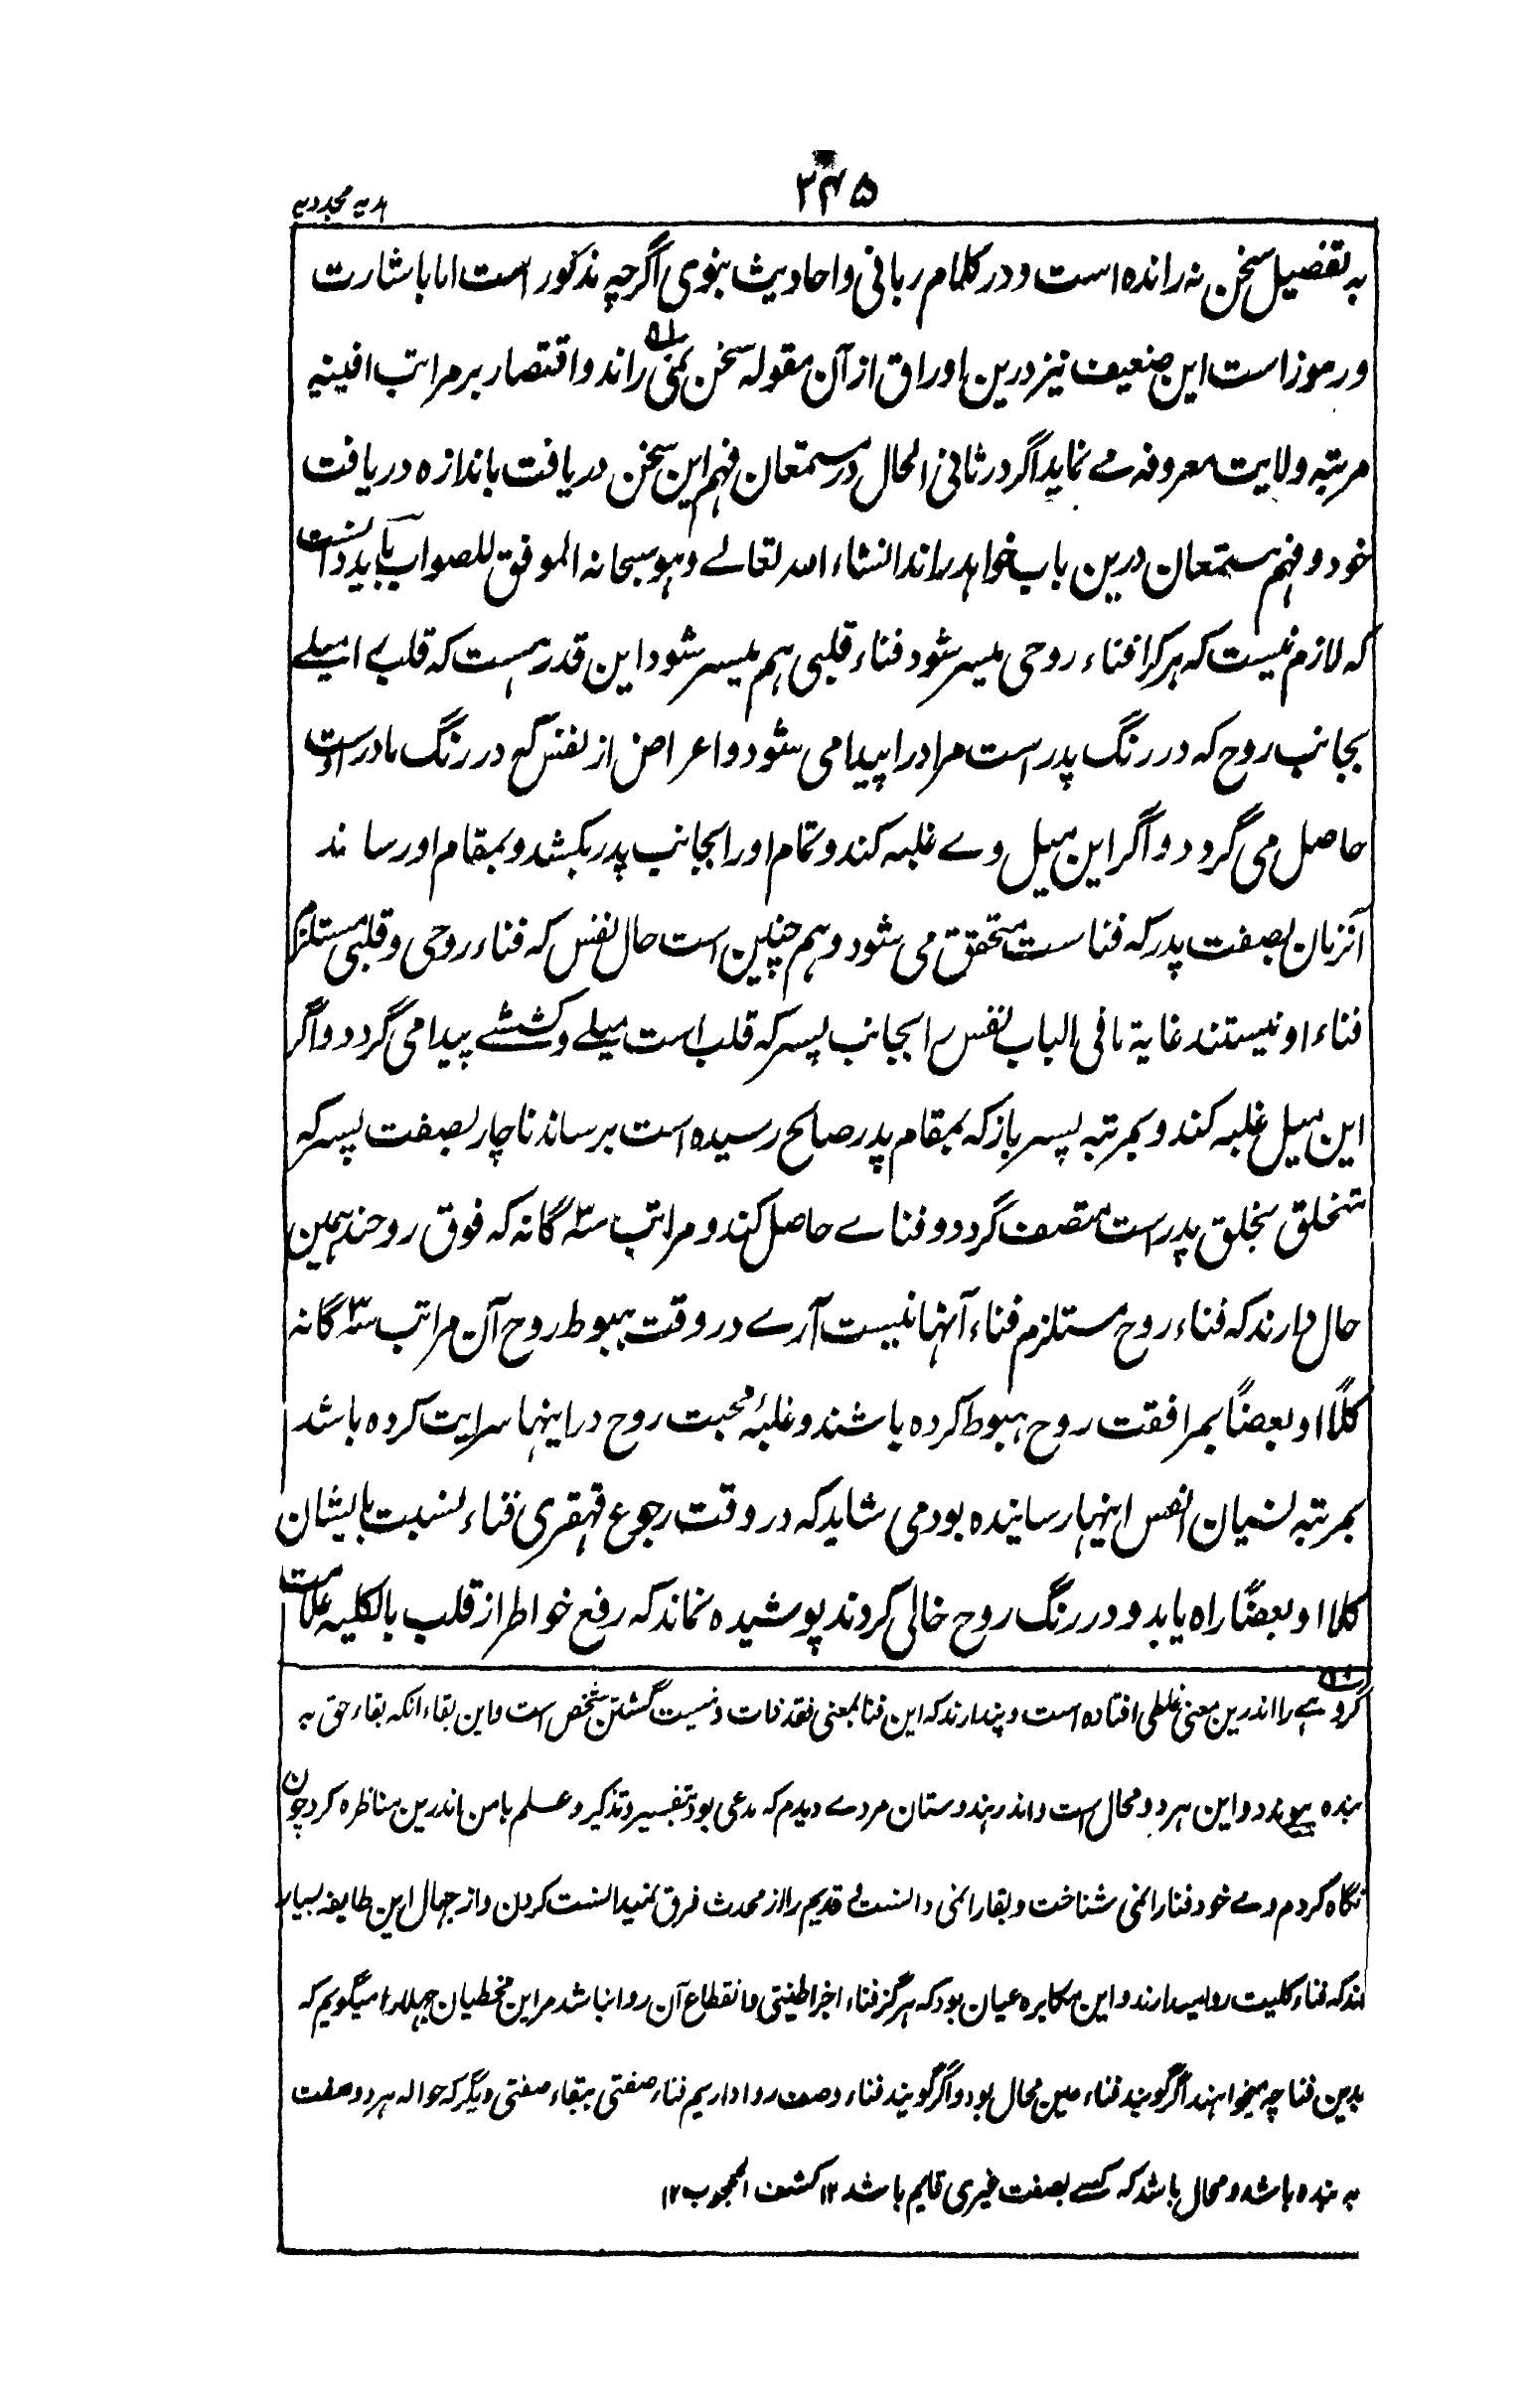 ۲۴۵
هدیه مجددیه
به تفصیل سخن نه رانده است و در کلام ربانی و احادیث نبوی اگرچه مذکور است اما باشارت
و رموز است این ضعیف نیز درین اوراق ازآن مقوله سخن نمی راند و اقتصار بر مراتب افنیه
مرتبه ولایت معروفه مے نماید اگر در ثانی الحال در مستمعان فهم این سخن دریافت باندازه دریافت
خود و فهم مستمعان درین باب خواهد راند انشاء الله تعالے و هو سبحانه الموفق للصواب باید دانست
که لازم نیست که هر کرا فناء روحی میسر شود فناء قلبی هم میسر شود این قدر هست که قلب را میلے
بجانب روح که در رنگ پدر است مر او را پیدا می شود و اعراض از نفس که در رنگ مادر اوست
حاصل می گردد و اگر این میل وے غلبه کند و تمام او را بجانب پدر بکشد و بمقام او رساند
آنزمان بصفت پدر که فناست متحقق می شود و هم چنین است حال نفس که فناء روحی و قلبی مستلزم
فناء او نیستند غایة ما فی الباب نفس را بجانب پسر که قلب است میلے و کششے پیدا می گردد و اگر
این میل غلبه کند و بمرتبه پسر باز که بمقام پدر صالح رسیده است برساند ناچار بصفت پسر که
متخلق بخلق پدر است متصف گردد و فنائے حاصل کند و مراتب سه گانه که فوق روحند همین
حال دارند که فناء روح مستلزم فناء آنها نیست آرے در وقت هبوط روح آن مراتب سه گانه
کلاً او بعضاً بمرافقت روح هبوط کرده باشند و غلبهٔ محبت روح در اینها سرایت کرده باشد
بمرتبه نسیان انفس اینها رسانیده بود می شاید که در وقت رجوع قهقری فناء نسبت بایشان
کلا او بعضاً راه یابد و در رنگ روح خالی کردند پوشیده نماند که رفع خواطر از قلب بالکلیه علامت
گروهے را اندرین معنی غلطی افتاده است و پندارند که این فنا بمعنی فقد ذات و نیست گشتن شخص است و این بقاء انکه بقاء حق به
بنده پیوندد و این هر دو محال است و اندر هندوستان مردے دیدم که مدعی بود بتفسیر و تذکیر و علم با من اندرین مناظره کرد چون
نگاه کردم وے خود فنا را نمی شناخت و بقا را نمی دانست و قدیم را از محدث فرق نمیدانست کردن و از جهال این طایفه بسیار
اند که فناء کلیت روا میدارند و این مکابره عیان بود که هرگز فناء اجزا طینتی و انقطاع آن روا نباشد مر این مخطیان جهله را میگویم که
بدین فنا چه میخواهند اگر گویند فناء عین محال بود و اگر گویند فناء وصف روا داریم فناء صفتی ببقاء صفتی دیگر که حواله هر دو صفت
به بنده باشد و محال باشد که کسے بصفت غیری قایم باشد ۱۲ کشف المحجوب ۱۲